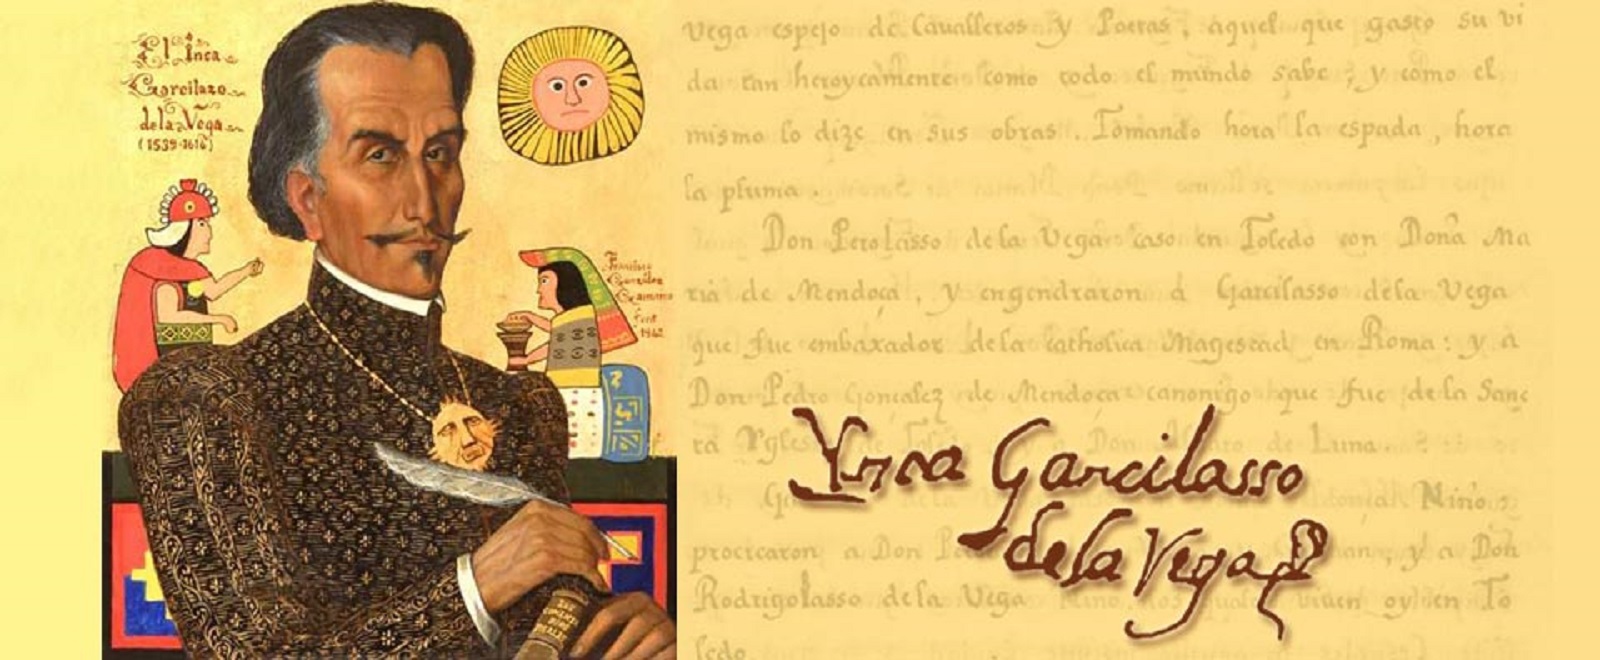 El Inca
Garcilazo
de la Vega
(1539-1616)
Francisco
González
Gamarra
vega espejo de Cavalleros y Poetas, aquel que gasto su vi
da tan heroycamente como todo el mundo sabe, y como el
mismo lo dize en sus obras. Tomando hora la espada, hora
la pluma.
Don Perolasso de la Vega caso en Toledo con Doña Ma
ria de Mendoça, y engendraron á Garcilasso dela Vega
que fue embaxador de la catholica Magestad en Roma: y á
Don Pedro Gonçalez de Mendoca canonigo que fue de la Sanc
ta Ygles de Don de Luna
Ninos
procrearon a Don y a Don
Rodrigolasso de la Vega Nino. los quales viuen oy en To
ledo.
Ynca Garcilasso
de la Vega